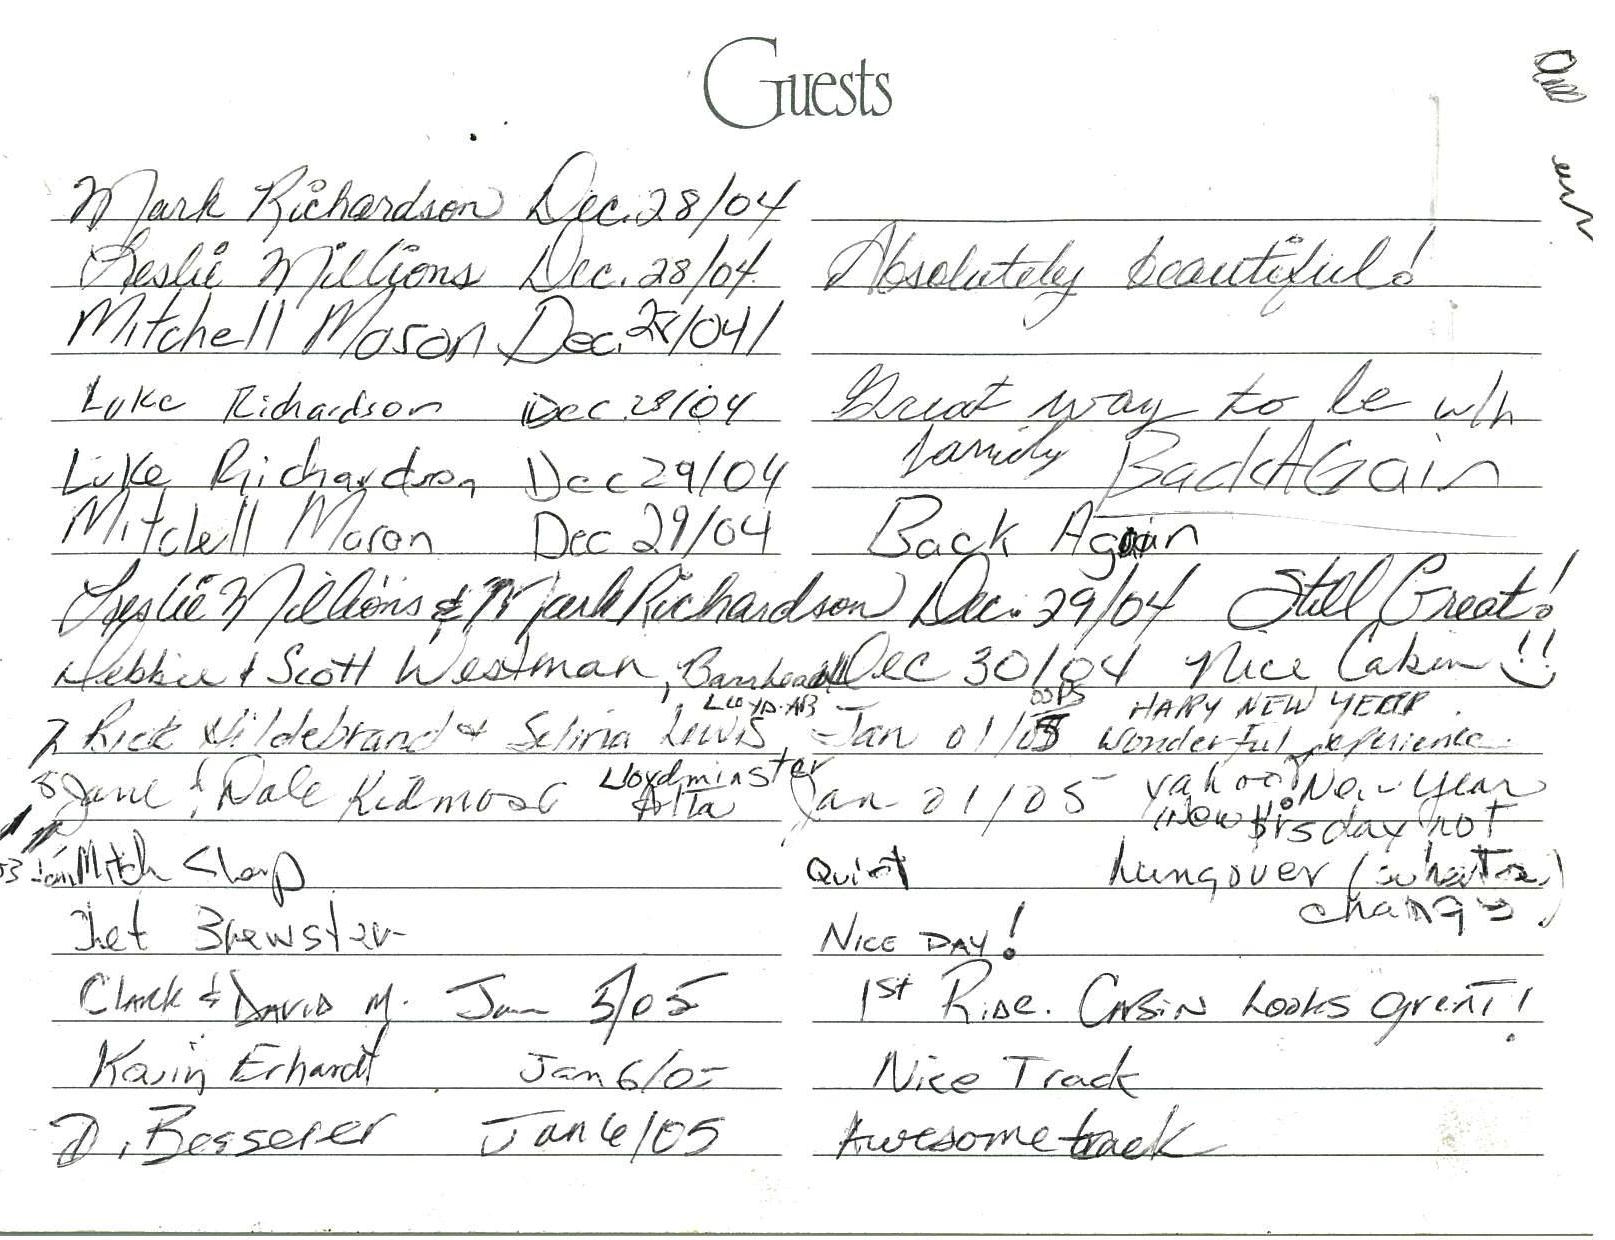 Guests
Mark Richardson Dec. 28/04
Leslie Millions Dec. 28/04 Absolutely beautiful!
Mitchell Mason Dec. 28/04
Luke Richardson Dec 28/04 Great way to be w/h
family Back Again
Luke Richardson Dec 29/04
Mitchell Mason Dec 29/04 Back Again
Leslie Millions & Mark Richardson Dec. 29/04 Still Great!
Debbie & Scott Westman, Barrhead Dec 30/04 Nice Cabin!!
LLOYD. AB OOPS HAPPY NEW YEAR
Rick Hildebrand & Selina Lewis, Jan 01/05 Wonderful experience.
Jane & Dale Lloydminster Alta Jan 01/05 yahoo New Year
(New Yrs day not
Mitch Sharp Quiet hungover (what a
change)
Chet Brewster NICE DAY!
Clark & DAVID M. Jan 5/05 1st RIDE. CABIN LOOKS great!
Kevin Erhardt Jan 6/05 Nice Track
D. Besserer Jan 6/05 Awesome track